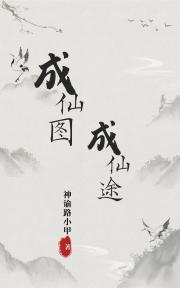 成仙图
成仙途
神谕路小甲
著